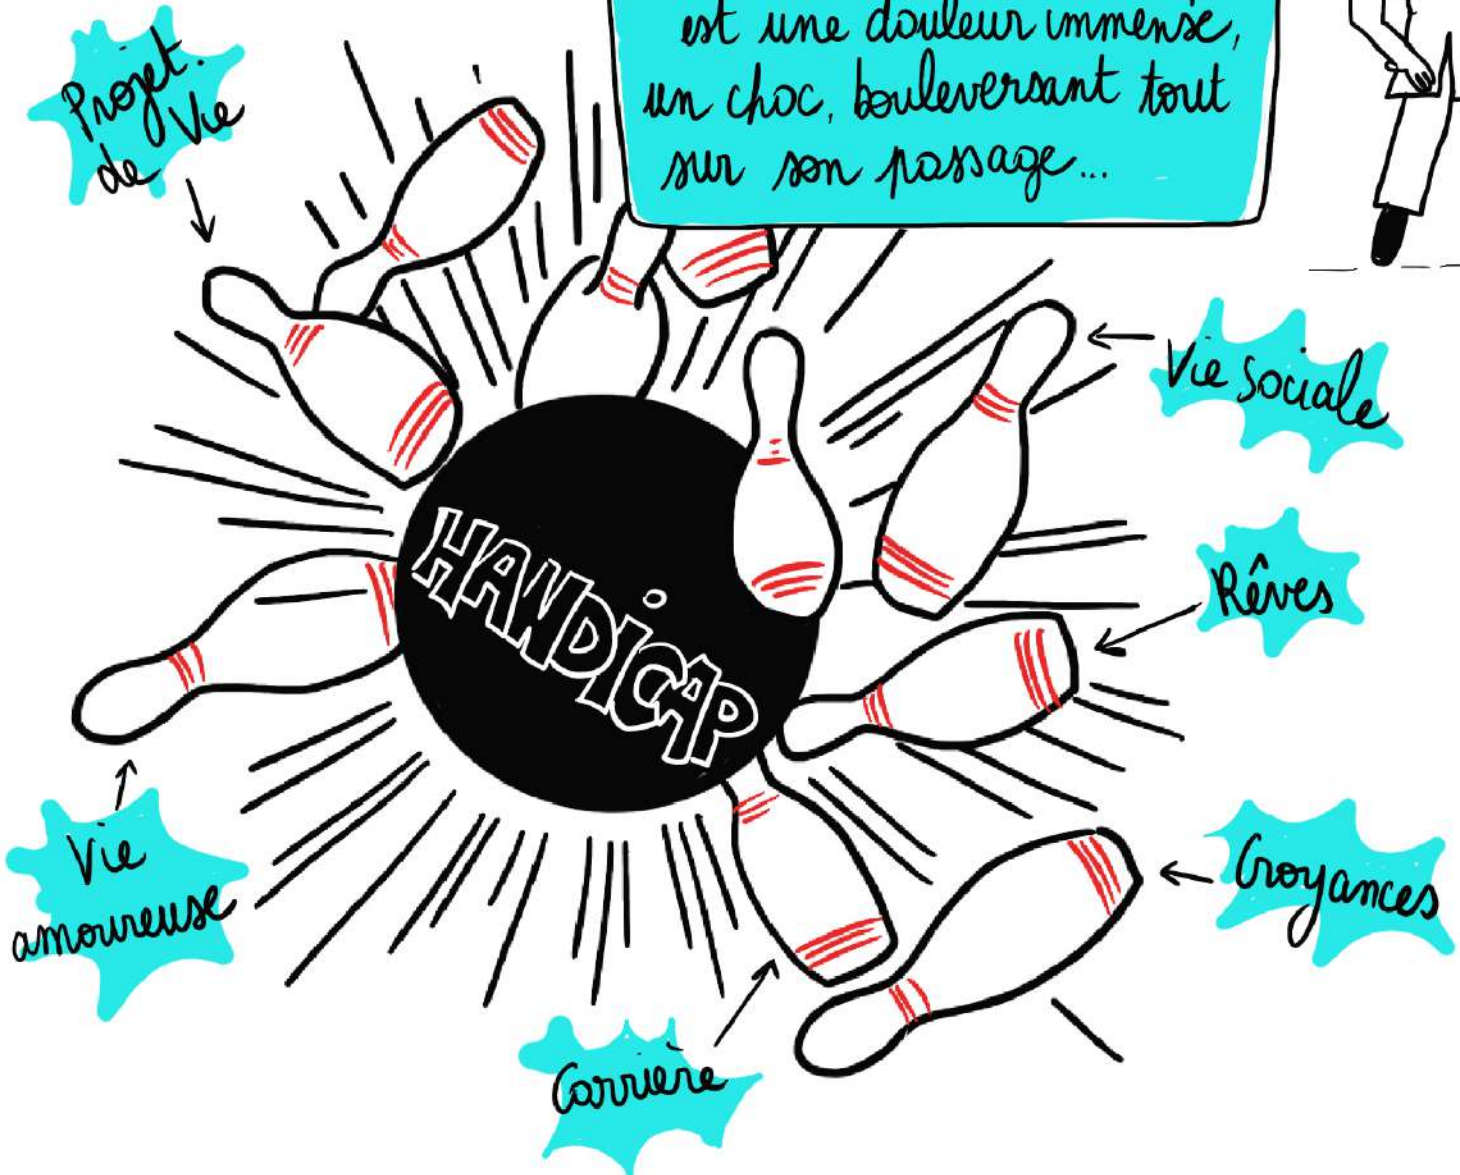 est une douleur immense,
un choc, bouleversant tout
sur son passage...
Projet
de Vie
Vie sociale
HANDICAP
Rêves
Vie
amoureuse
Croyances
Carrière